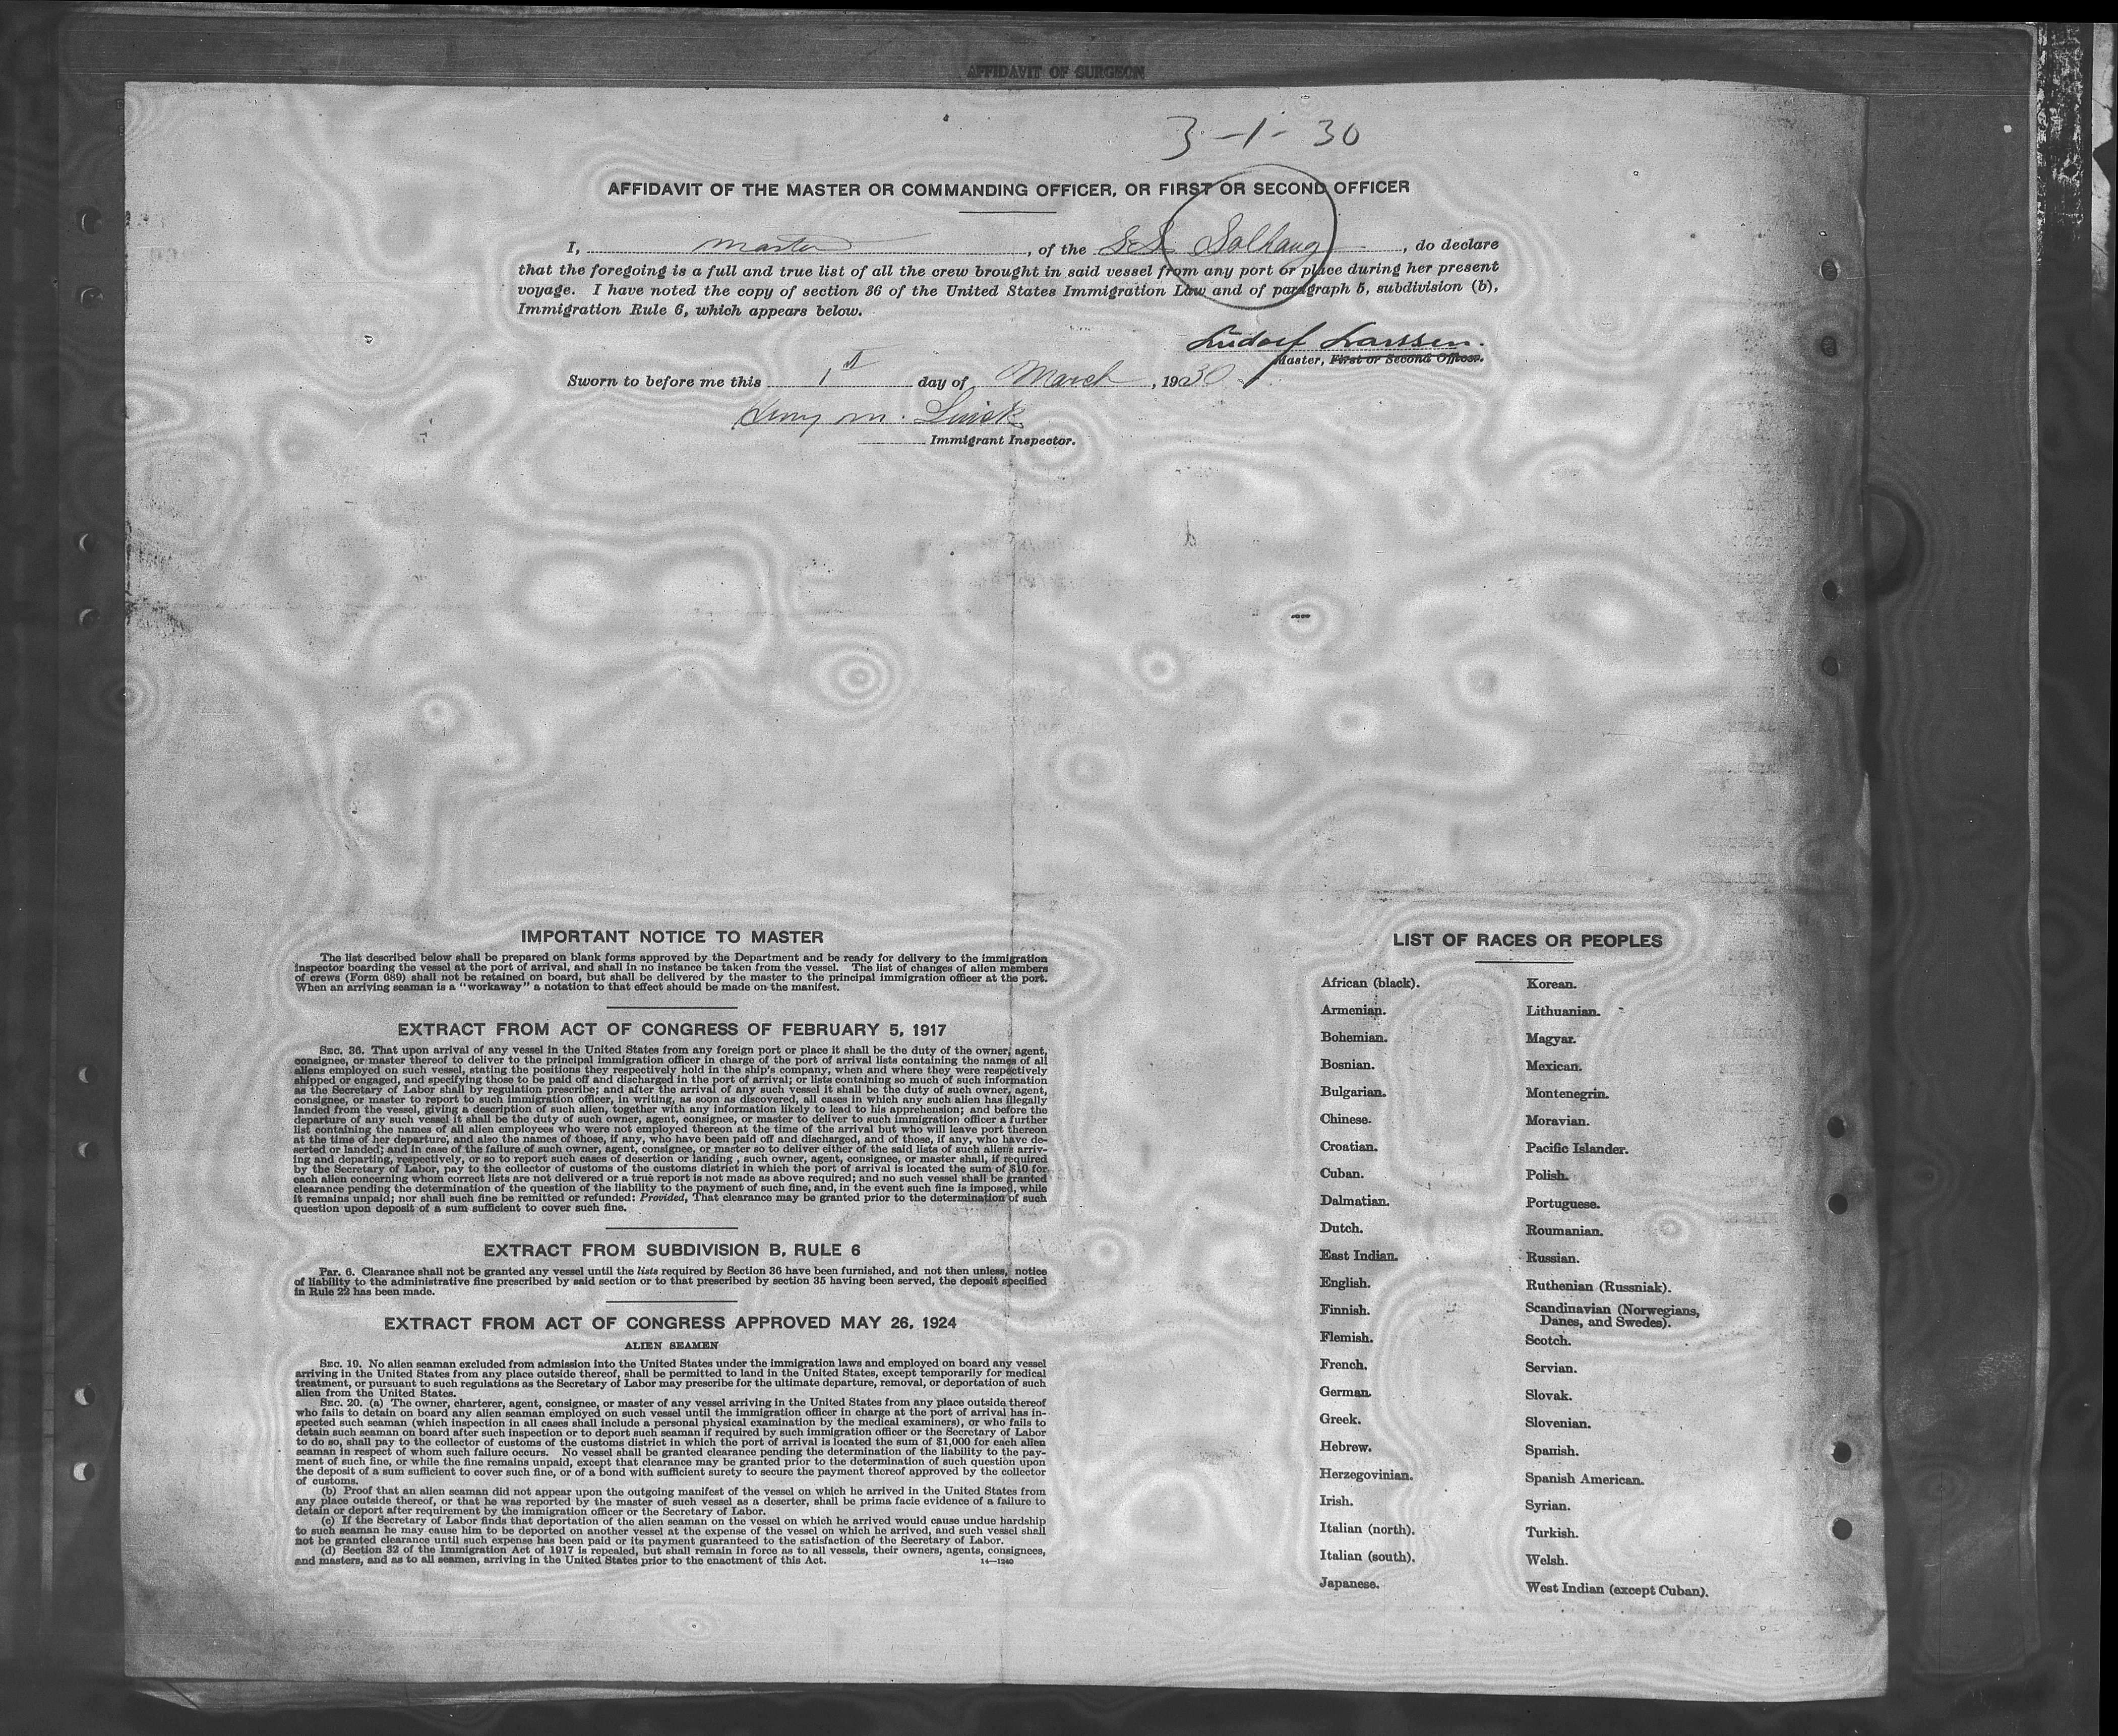 AFFIDAVIT OF SURGEON
3-1-30
AFFIDAVIT OF THE MASTER OR COMMANDING OFFICER, OR FIRST OR SECOND OFFICER
I, master, of the S.S. Solhaug, do declare
that the foregoing is a full and true list of all the crew brought in said vessel from any port or place during her present
voyage. I have noted the copy of section 36 of the United States Immigration Law and of paragraph 5, subdivision (b),
Immigration Rule 6, which appears below.
Ludolf Larssen.
Master, First or Second Officer.
Sworn to before me this 1st day of March, 1930
M.
Immigrant Inspector.
IMPORTANT NOTICE TO MASTER
The list described below shall be prepared on blank forms approved by the Department and be ready for delivery to the immigration
inspector boarding the vessel at the port of arrival, and shall in no instance be taken from the vessel. The list of changes of alien members
of crews (Form 689) shall not be retained on board, but shall be delivered by the master to the principal immigration officer at the port.
When an arriving seaman is a "workaway" a notation to that effect should be made on the manifest.
EXTRACT FROM ACT OF CONGRESS OF FEBRUARY 5, 1917
SEC. 36. That upon arrival of any vessel in the United States from any foreign port or place it shall be the duty of the owner, agent,
consignee, or master thereof to deliver to the principal immigration officer in charge of the port of arrival lists containing the names of all
aliens employed on such vessel, stating the positions they respectively hold in the ship's company, when and where they were respectively
shipped or engaged, and specifying those to be paid off and discharged in the port of arrival; or lists containing so much of such information
as the Secretary of Labor shall by regulation prescribe; and after the arrival of any such vessel it shall be the duty of such owner, agent,
consignee, or master to report to such immigration officer, in writing, as soon as discovered, all cases in which any such alien has illegally
landed from the vessel, giving a description of such alien, together with any information likely to lead to his apprehension; and before the
departure of any such vessel it shall be the duty of such owner, agent, consignee, or master to deliver to such immigration officer a further
list containing the names of all alien employees who were not employed thereon at the time of the arrival but who will leave port thereon
at the time of her departure, and also the names of those, if any, who have been paid off and discharged, and of those, if any, who have de-
serted or landed; and in case of the failure of such owner, agent, consignee, or master so to deliver either of the said lists of such aliens arriv-
ing and departing, respectively, or so to report such cases of desertion or landing, such owner, agent, consignee, or master shall, if required
by the Secretary of Labor, pay to the collector of customs of the customs district in which the port of arrival is located the sum of $10 for
each alien concerning whom correct lists are not delivered or a true report is not made as above required; and no such vessel shall be granted
clearance pending the determination of the question of the liability to the payment of such fine, and, in the event such fine is imposed, while
it remains unpaid; nor shall such fine be remitted or refunded: Provided, That clearance may be granted prior to the determination of such
question upon deposit of a sum sufficient to cover such fine.
EXTRACT FROM SUBDIVISION B, RULE 6
Par. 6. Clearance shall not be granted any vessel until the lists required by Section 36 have been furnished, and not then unless, notice
of liability to the administrative fine prescribed by said section or to that prescribed by section 35 having been served, the deposit specified
in Rule 22 has been made.
EXTRACT FROM ACT OF CONGRESS APPROVED MAY 26, 1924
ALIEN SEAMEN
SEC. 19. No alien seaman excluded from admission into the United States under the immigration laws and employed on board any vessel
arriving in the United States from any place outside thereof, shall be permitted to land in the United States, except temporarily for medical
treatment, or pursuant to such regulations as the Secretary of Labor may prescribe for the ultimate departure, removal, or deportation of such
alien from the United States.
SEC. 20. (a) The owner, charterer, agent, consignee, or master of any vessel arriving in the United States from any place outside thereof
who fails to detain on board any alien seaman employed on such vessel until the immigration officer in charge at the port of arrival has in-
spected such seaman (which inspection in all cases shall include a personal physical examination by the medical examiners), or who fails to
detain such seaman on board after such inspection or to deport such seaman if required by such immigration officer or the Secretary of Labor
to do so, shall pay to the collector of customs of the customs district in which the port of arrival is located the sum of $1,000 for each alien
seaman in respect of whom such failure occurs. No vessel shall be granted clearance pending the determination of the liability to the pay-
ment of such fine, or while the fine remains unpaid, except that clearance may be granted prior to the determination of such question upon
the deposit of a sum sufficient to cover such fine, or of a bond with sufficient surety to secure the payment thereof approved by the collector
of customs.
(b) Proof that an alien seaman did not appear upon the outgoing manifest of the vessel on which he arrived in the United States from
any place outside thereof, or that he was reported by the master of such vessel as a deserter, shall be prima facie evidence of a failure to
detain or deport after requirement by the immigration officer or the Secretary of Labor.
(c) If the Secretary of Labor finds that deportation of the alien seaman on the vessel on which he arrived would cause undue hardship
to such seaman he may cause him to be deported on another vessel at the expense of the vessel on which he arrived, and such vessel shall
not be granted clearance until such expense has been paid or its payment guaranteed to the satisfaction of the Secretary of Labor.
(d) Section 32 of the Immigration Act of 1917 is repealed, but shall remain in force as to all vessels, their owners, agents, consignees,
and masters, and as to all seamen, arriving in the United States prior to the enactment of this Act.
14—1240
LIST OF RACES OR PEOPLES
African (black).
Armenian.
Bohemian.
Bosnian.
Bulgarian.
Chinese.
Croatian.
Cuban.
Dalmatian.
Dutch.
East Indian.
English.
Finnish.
Flemish.
French.
German.
Greek.
Hebrew.
Herzegovinian.
Irish.
Italian (north).
Italian (south).
Japanese.
Korean.
Lithuanian.
Magyar.
Mexican.
Montenegrin.
Moravian.
Pacific Islander.
Polish.
Portuguese.
Roumanian.
Russian.
Ruthenian (Russniak).
Scandinavian (Norwegians,
Danes, and Swedes).
Scotch.
Servian.
Slovak.
Slovenian.
Spanish.
Spanish American.
Syrian.
Turkish.
Welsh.
West Indian (except Cuban).